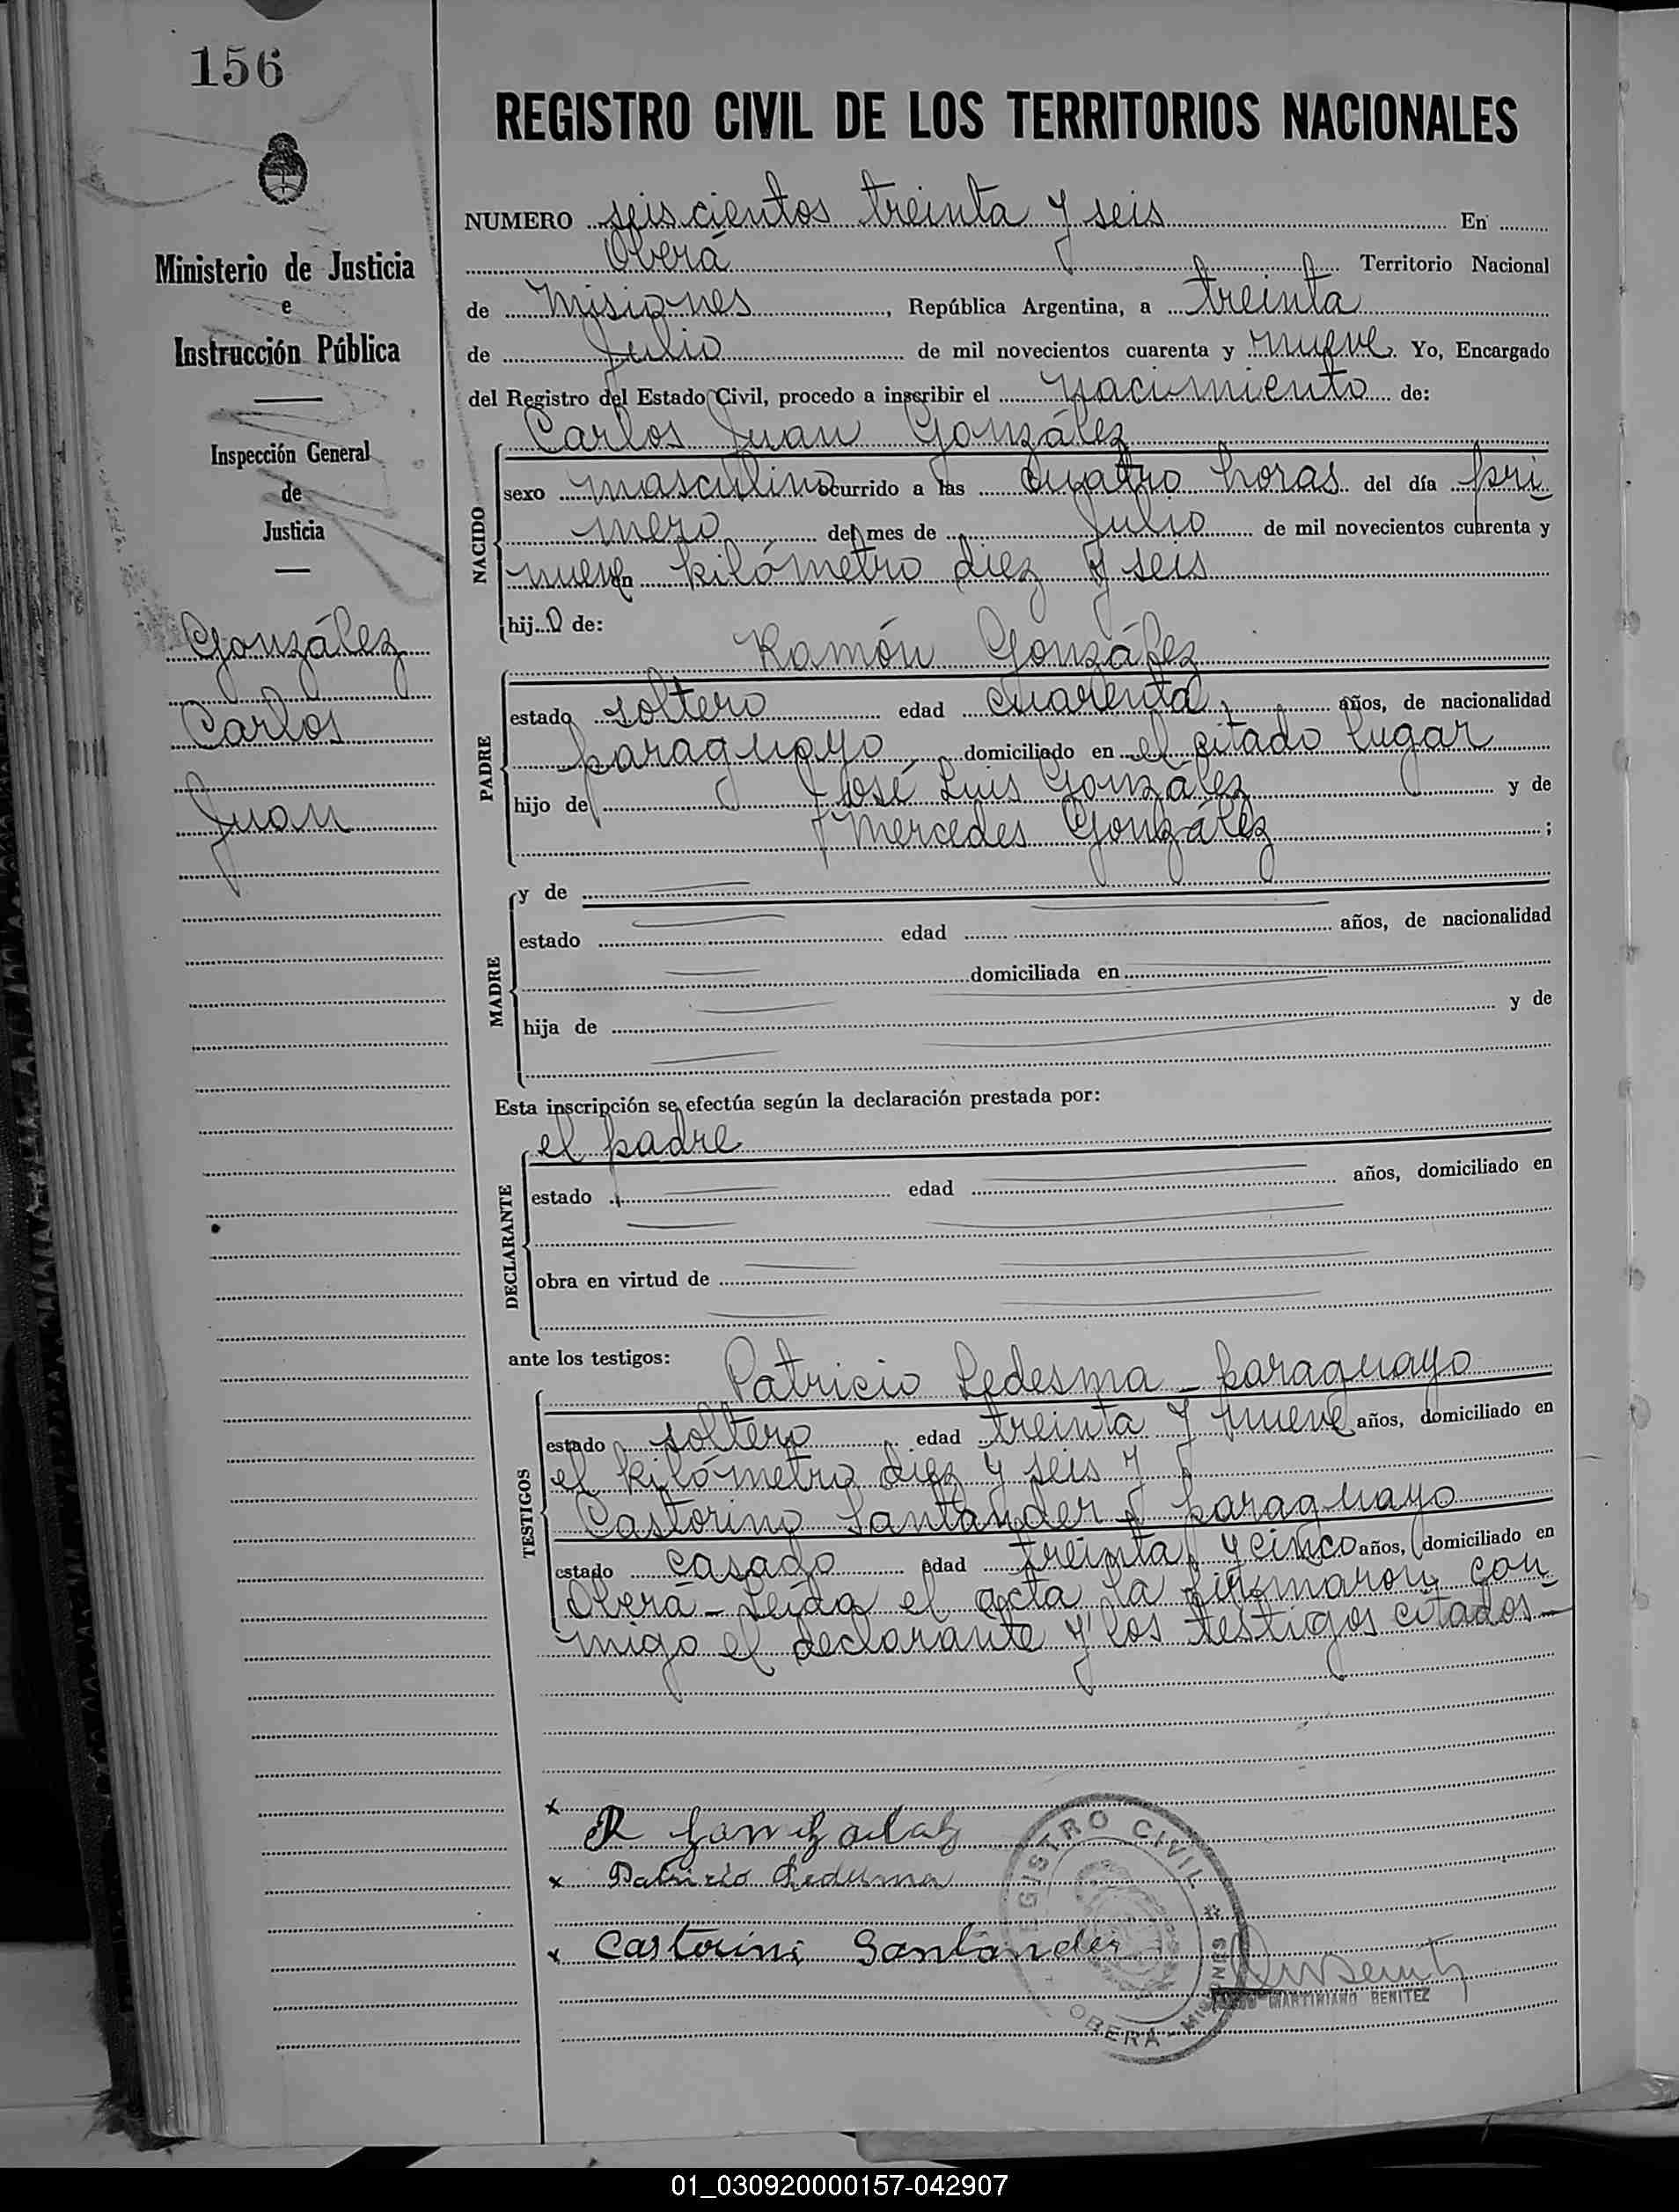 156
REGISTRO CIVIL DE LOS TERRITORIOS NACIONALES
Ministerio de Justicia
e
Instrucción Pública
Inspección General
de
Justicia
González
Carlos
Juan
NUMERO seiscientos treinta y seis En
Oberá Territorio Nacional
de Misiones, República Argentina, a treinta
de Julio de mil novecientos cuarenta y nueve. Yo, Encargado
del Registro del Estado Civil, procedo a inscribir el nacimiento de:
NACIDO
Carlos Juan González
sexo masculino ocurrido a las cuatro horas del día pri
mero del mes de Julio de mil novecientos cuarenta y
nueve en kilómetro diez y seis
hijo de:
PADRE
Ramón González
estado soltero edad cuarenta años, de nacionalidad
paraguayo domiciliado en el citado lugar
hijo de José Luis González y de
Mercedes González;
MADRE
y de
estado edad años, de nacionalidad
domiciliada en
hija de y de
Esta inscripción se efectúa según la declaración prestada por:
DECLARANTE
el padre
estado edad años, domiciliado en
obra en virtud de
ante los testigos:
TESTIGOS
Patricio Ledesma - paraguayo
estado soltero edad treinta y nueve años, domiciliado en
el kilómetro diez y seis y
Castorino Santander paraguayo
estado casado edad treinta y cinco años, domiciliado en
Oberá - Leída el acta la firmaron con
migo el declarante y los testigos citados -
x
R Gonzalez
x Patricio Ledesma
x Castorino Santander
REGISTRO CIVIL
OBERÁ - MISIONES
MARTINIANO BENITEZ
01_030920000157-042907